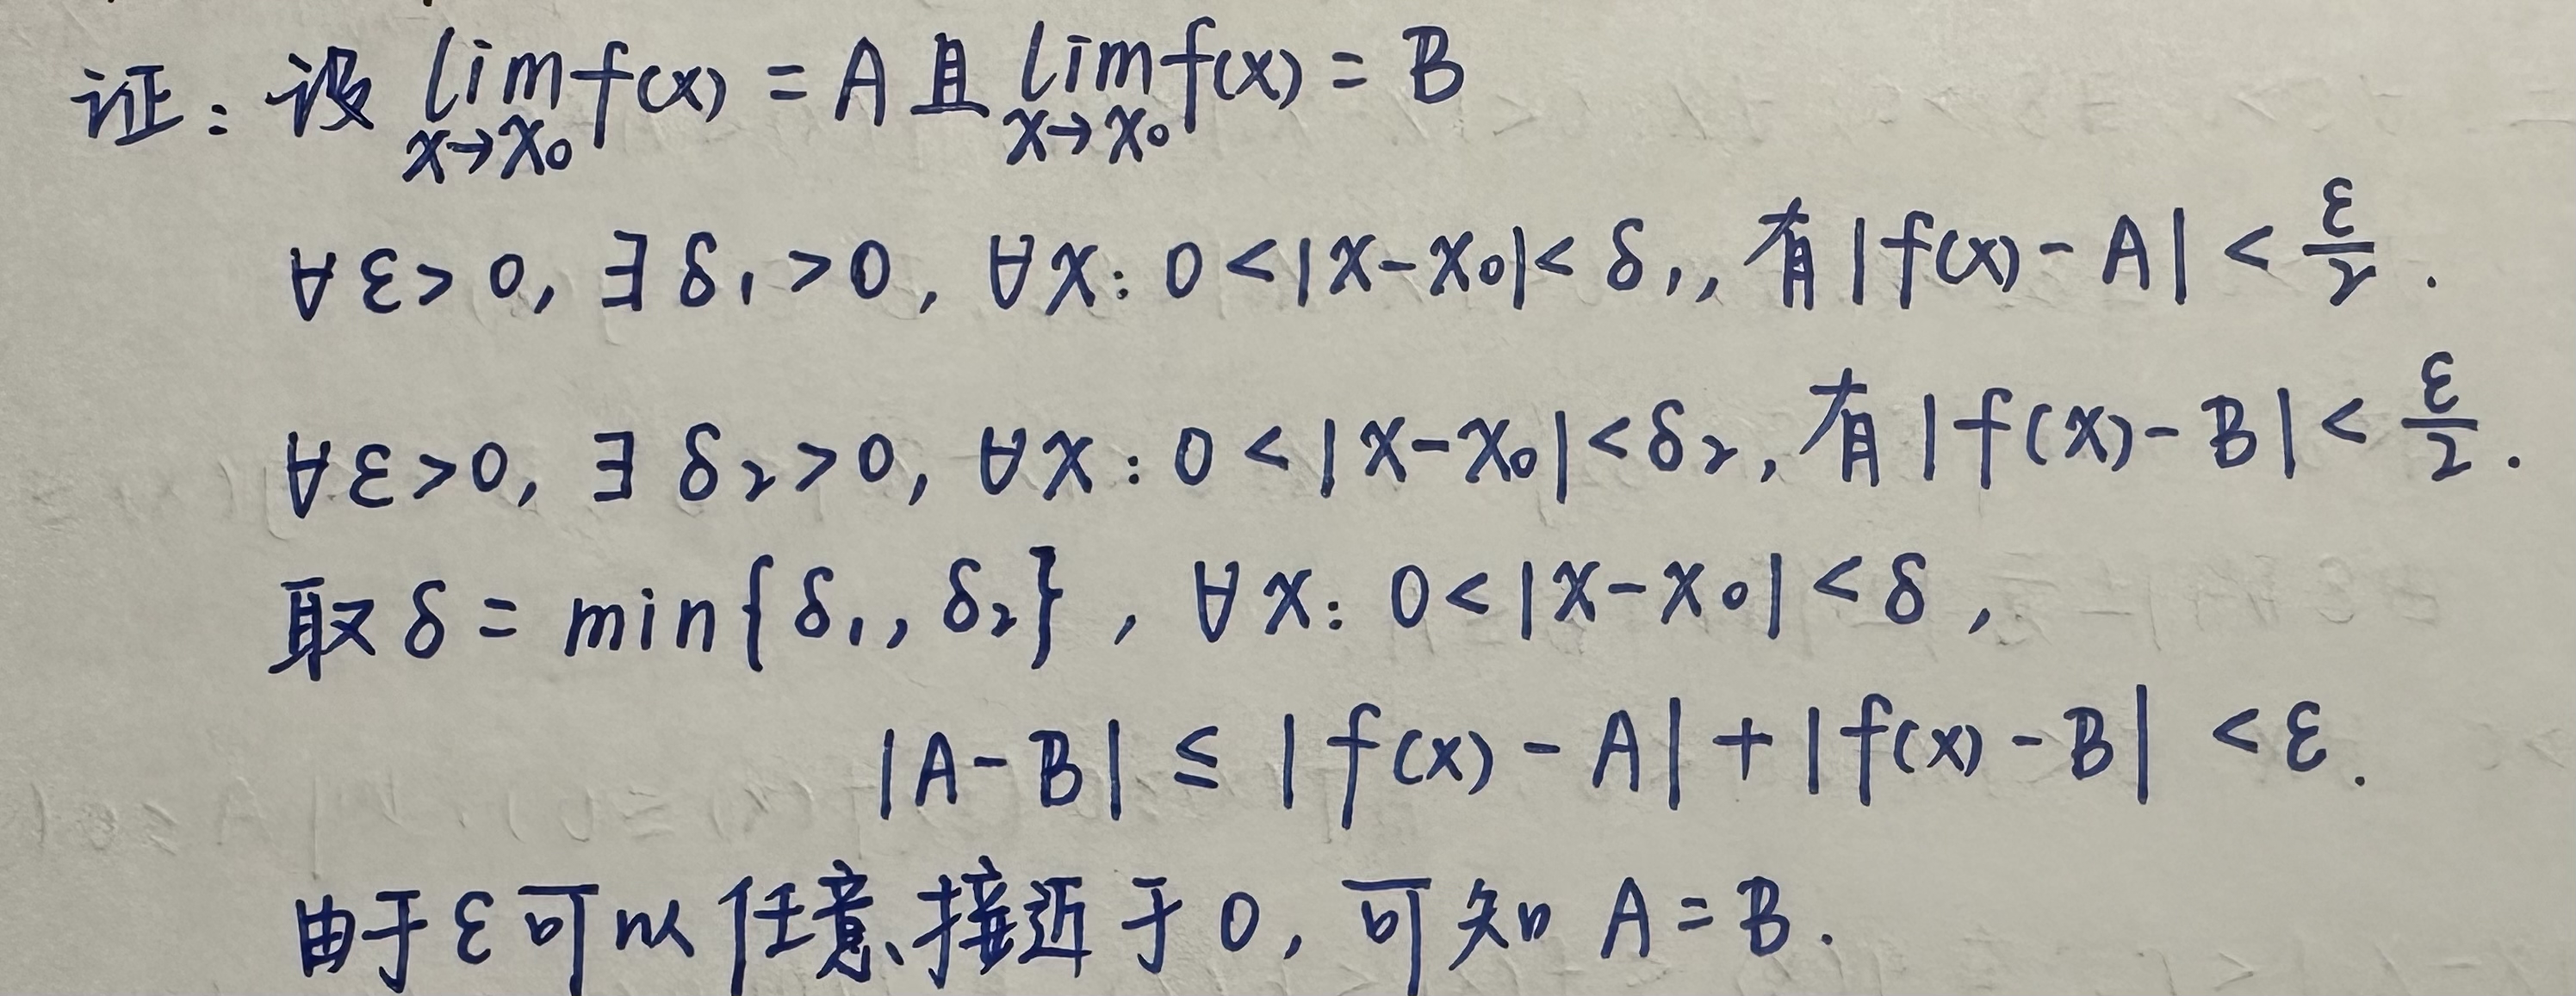 证：设 lim f(x) = A 且 lim f(x) = B
x→x₀ x→x₀
∀ε>0, ∃δ₁>0, ∀x: 0<|x-x₀|<δ₁, 有|f(x)-A|<ε/2.
∀ε>0, ∃δ₂>0, ∀x: 0<|x-x₀|<δ₂, 有|f(x)-B|<ε/2.
取δ = min{δ₁, δ₂}, ∀x: 0<|x-x₀|<δ,
|A-B| ≤ |f(x)-A|+|f(x)-B| <ε.
由于ε可以任意接近于0, 可知 A=B.